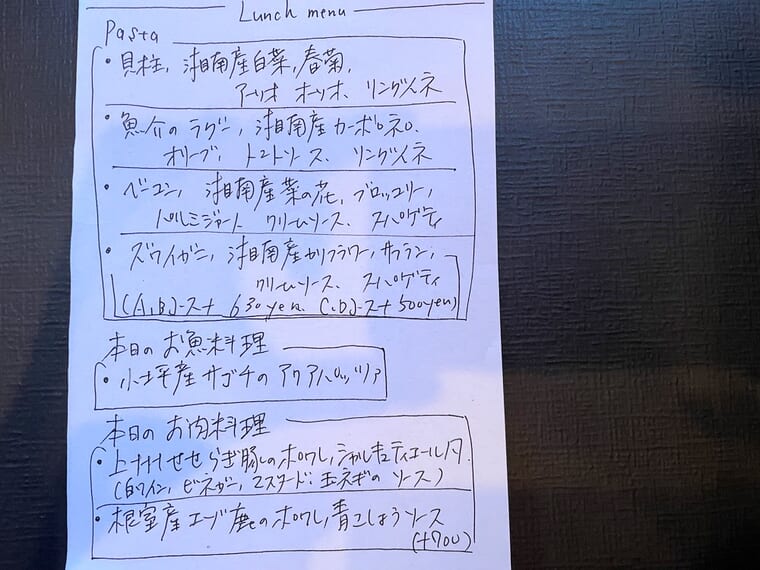 Lunch menu
Pasta
・貝柱, 湘南産白菜, 春菊,
アーリオ オーリオ、 リングイネ
・魚介の ラグー, 湘南産 カーボロネロ、
オリーブ, トマトソース、 リングイネ
・ベーコン, 湘南産菜の花, ブロッコリー,
パルミジャーノ クリームソース、 スパゲティ
・ズワイガニ, 湘南産カリフラワー, サフラン,
クリームソース、 スパゲティ
(A,Bコース+ 630yen、C,Dコース+500yen)
本日の お魚料理
・小坪産サゴチの アクアパッツァ
本日の お肉料理
・上州せせらぎ豚のポワレ, シャルキュティエール風
(白ワイン, ビネガー, マスタード, 玉ネギの ソース)
・根室産エゾ鹿のポワレ, 青こしょうソース
(+700)